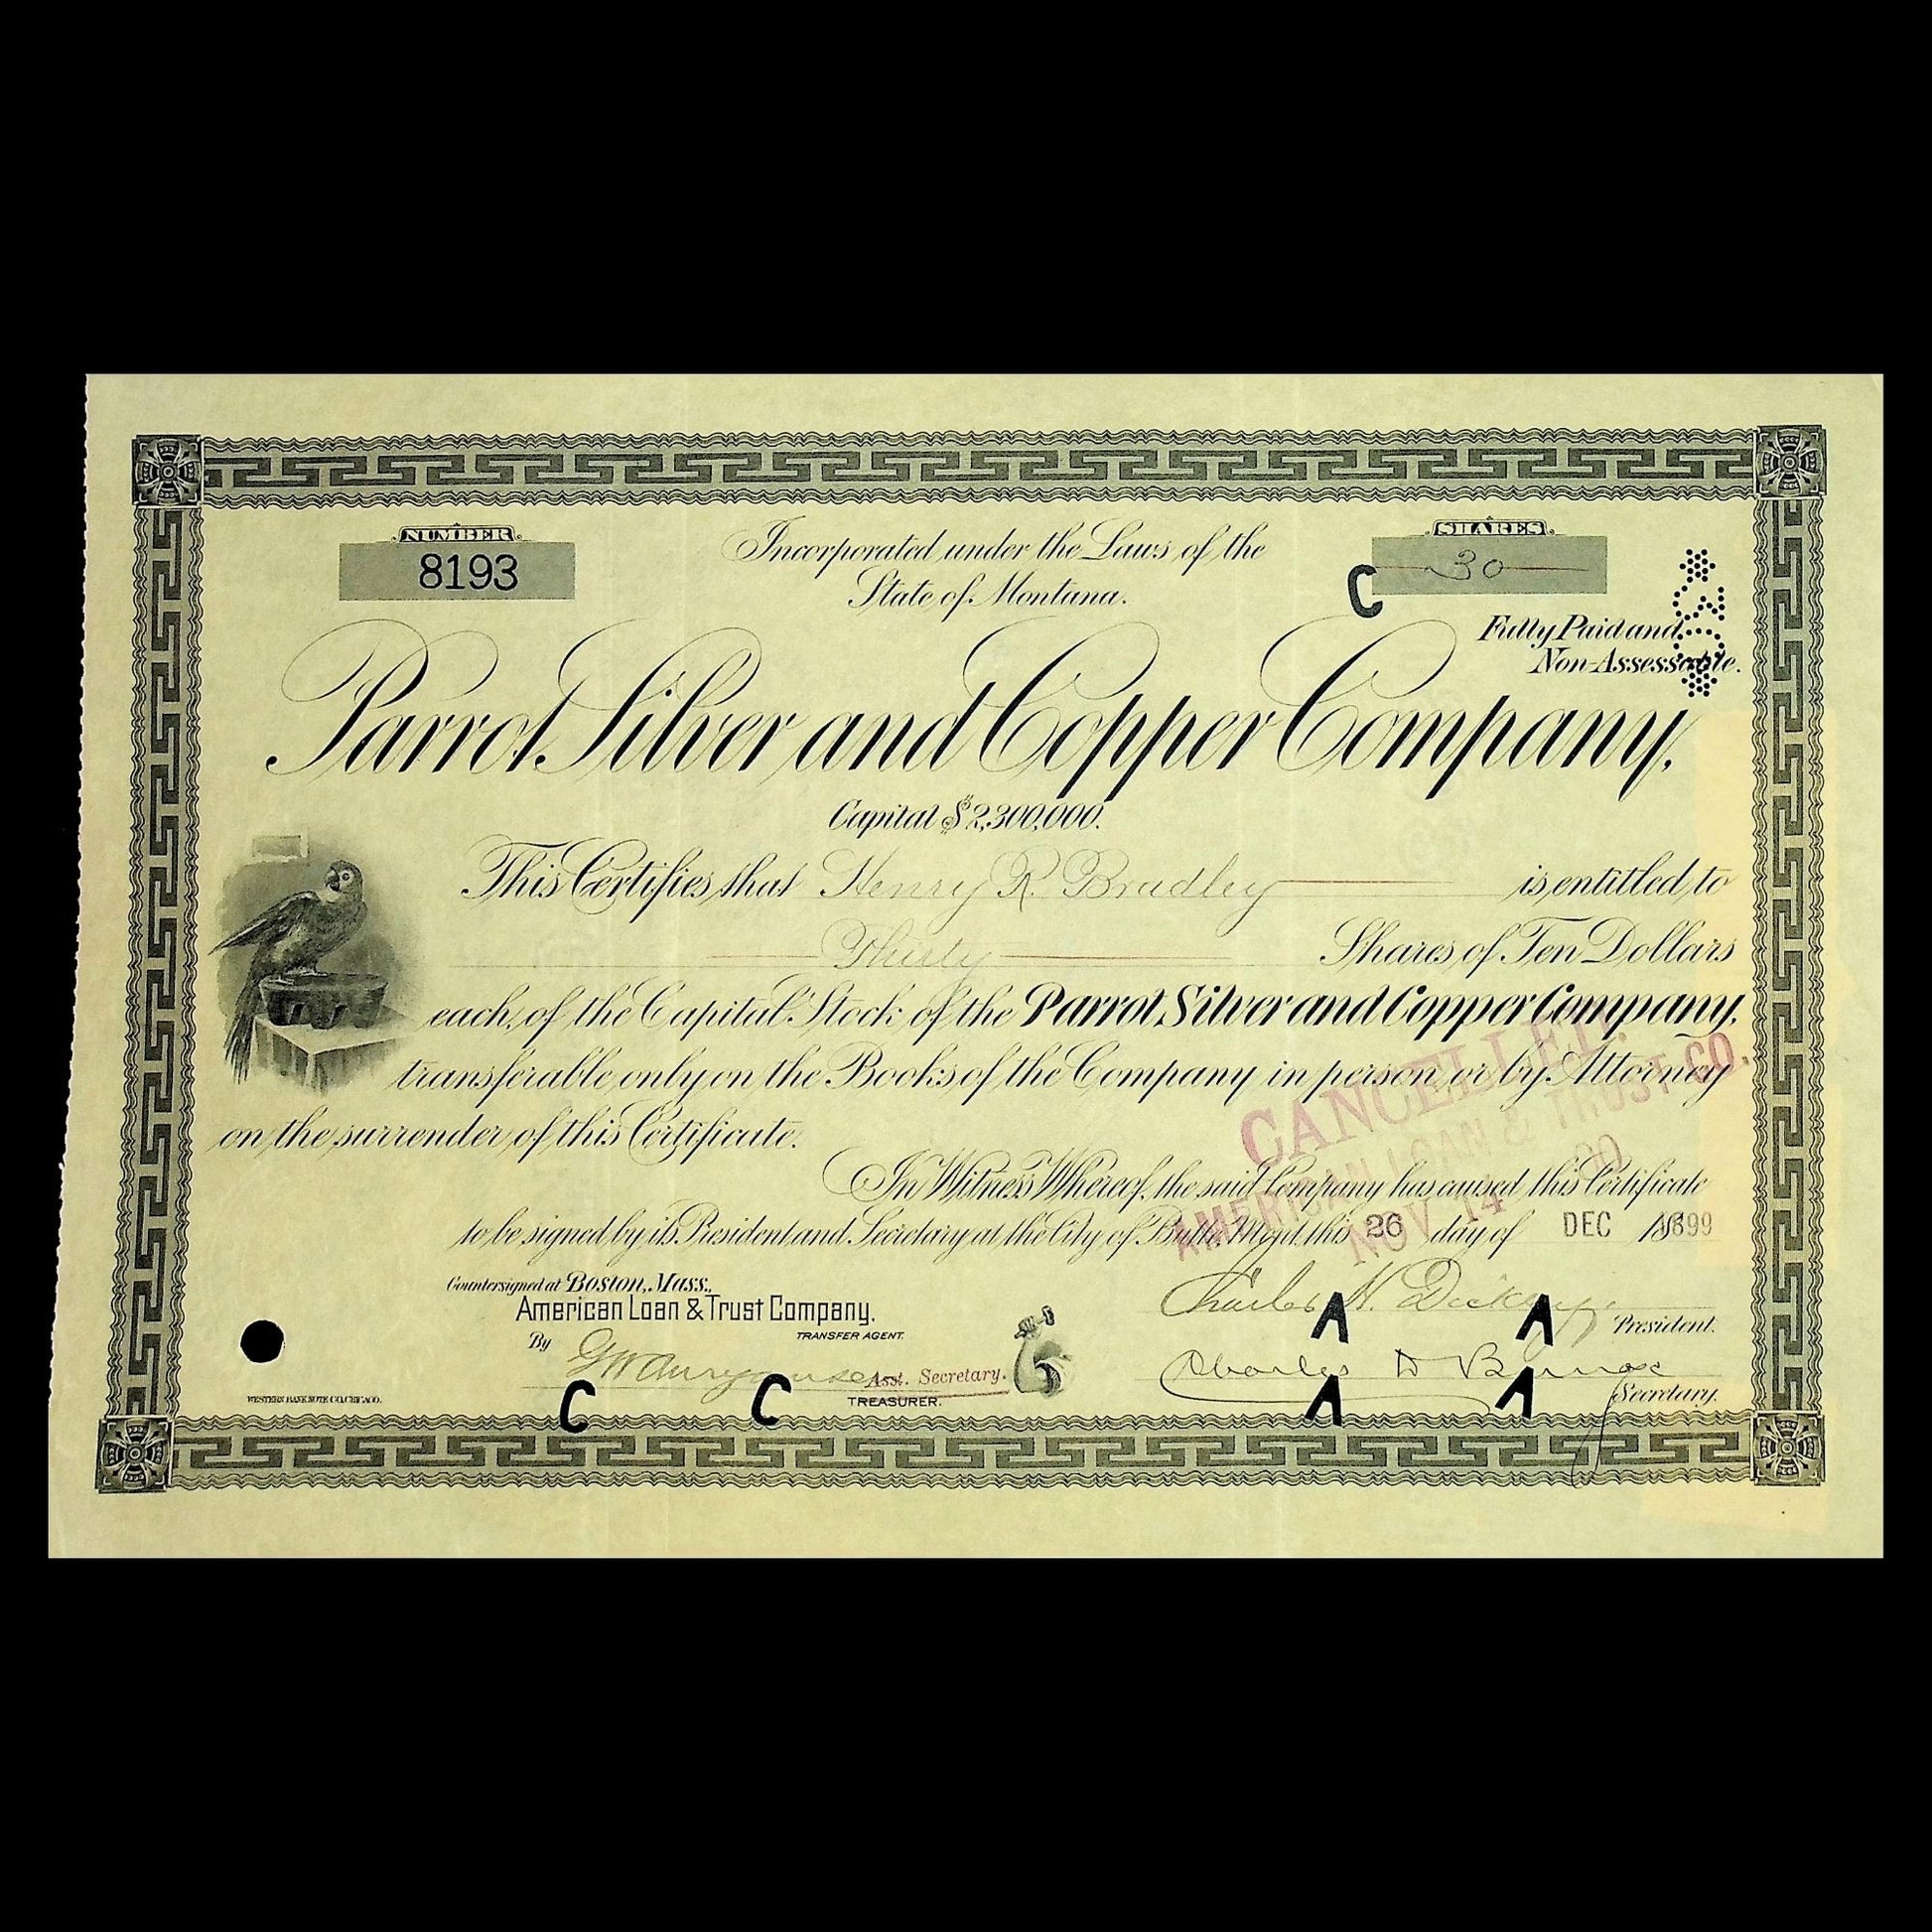 NUMBER
8193
Incorporated under the Laws of the
State of Montana.
SHARES
30
C
Fully Paid and
Non-Assessable.
Parrot Silver and Copper Company,
Capital $2,300,000.
This Certifies that Henry R. Bradley is entitled to
Thirty Shares of Ten Dollars
each, of the Capital Stock of the Parrot Silver and Copper Company,
transferable only on the Books of the Company in person or by Attorney
on the surrender of this Certificate.
CANCELLED.
AMERICAN LOAN & TRUST CO.
NOV 14
In Witness Whereof, the said Company has caused this Certificate
to be signed by its President and Secretary at the City of Butte, Mont. this 26 day of DEC 1899
Countersigned at Boston, Mass.,
American Loan & Trust Company.
TRANSFER AGENT.
By
Asst. Secretary.
TREASURER.
Charles H. Dickey
President.
Charles D
Secretary.
A A
C C A A
WESTERN BANK NOTE CO. CHICAGO.